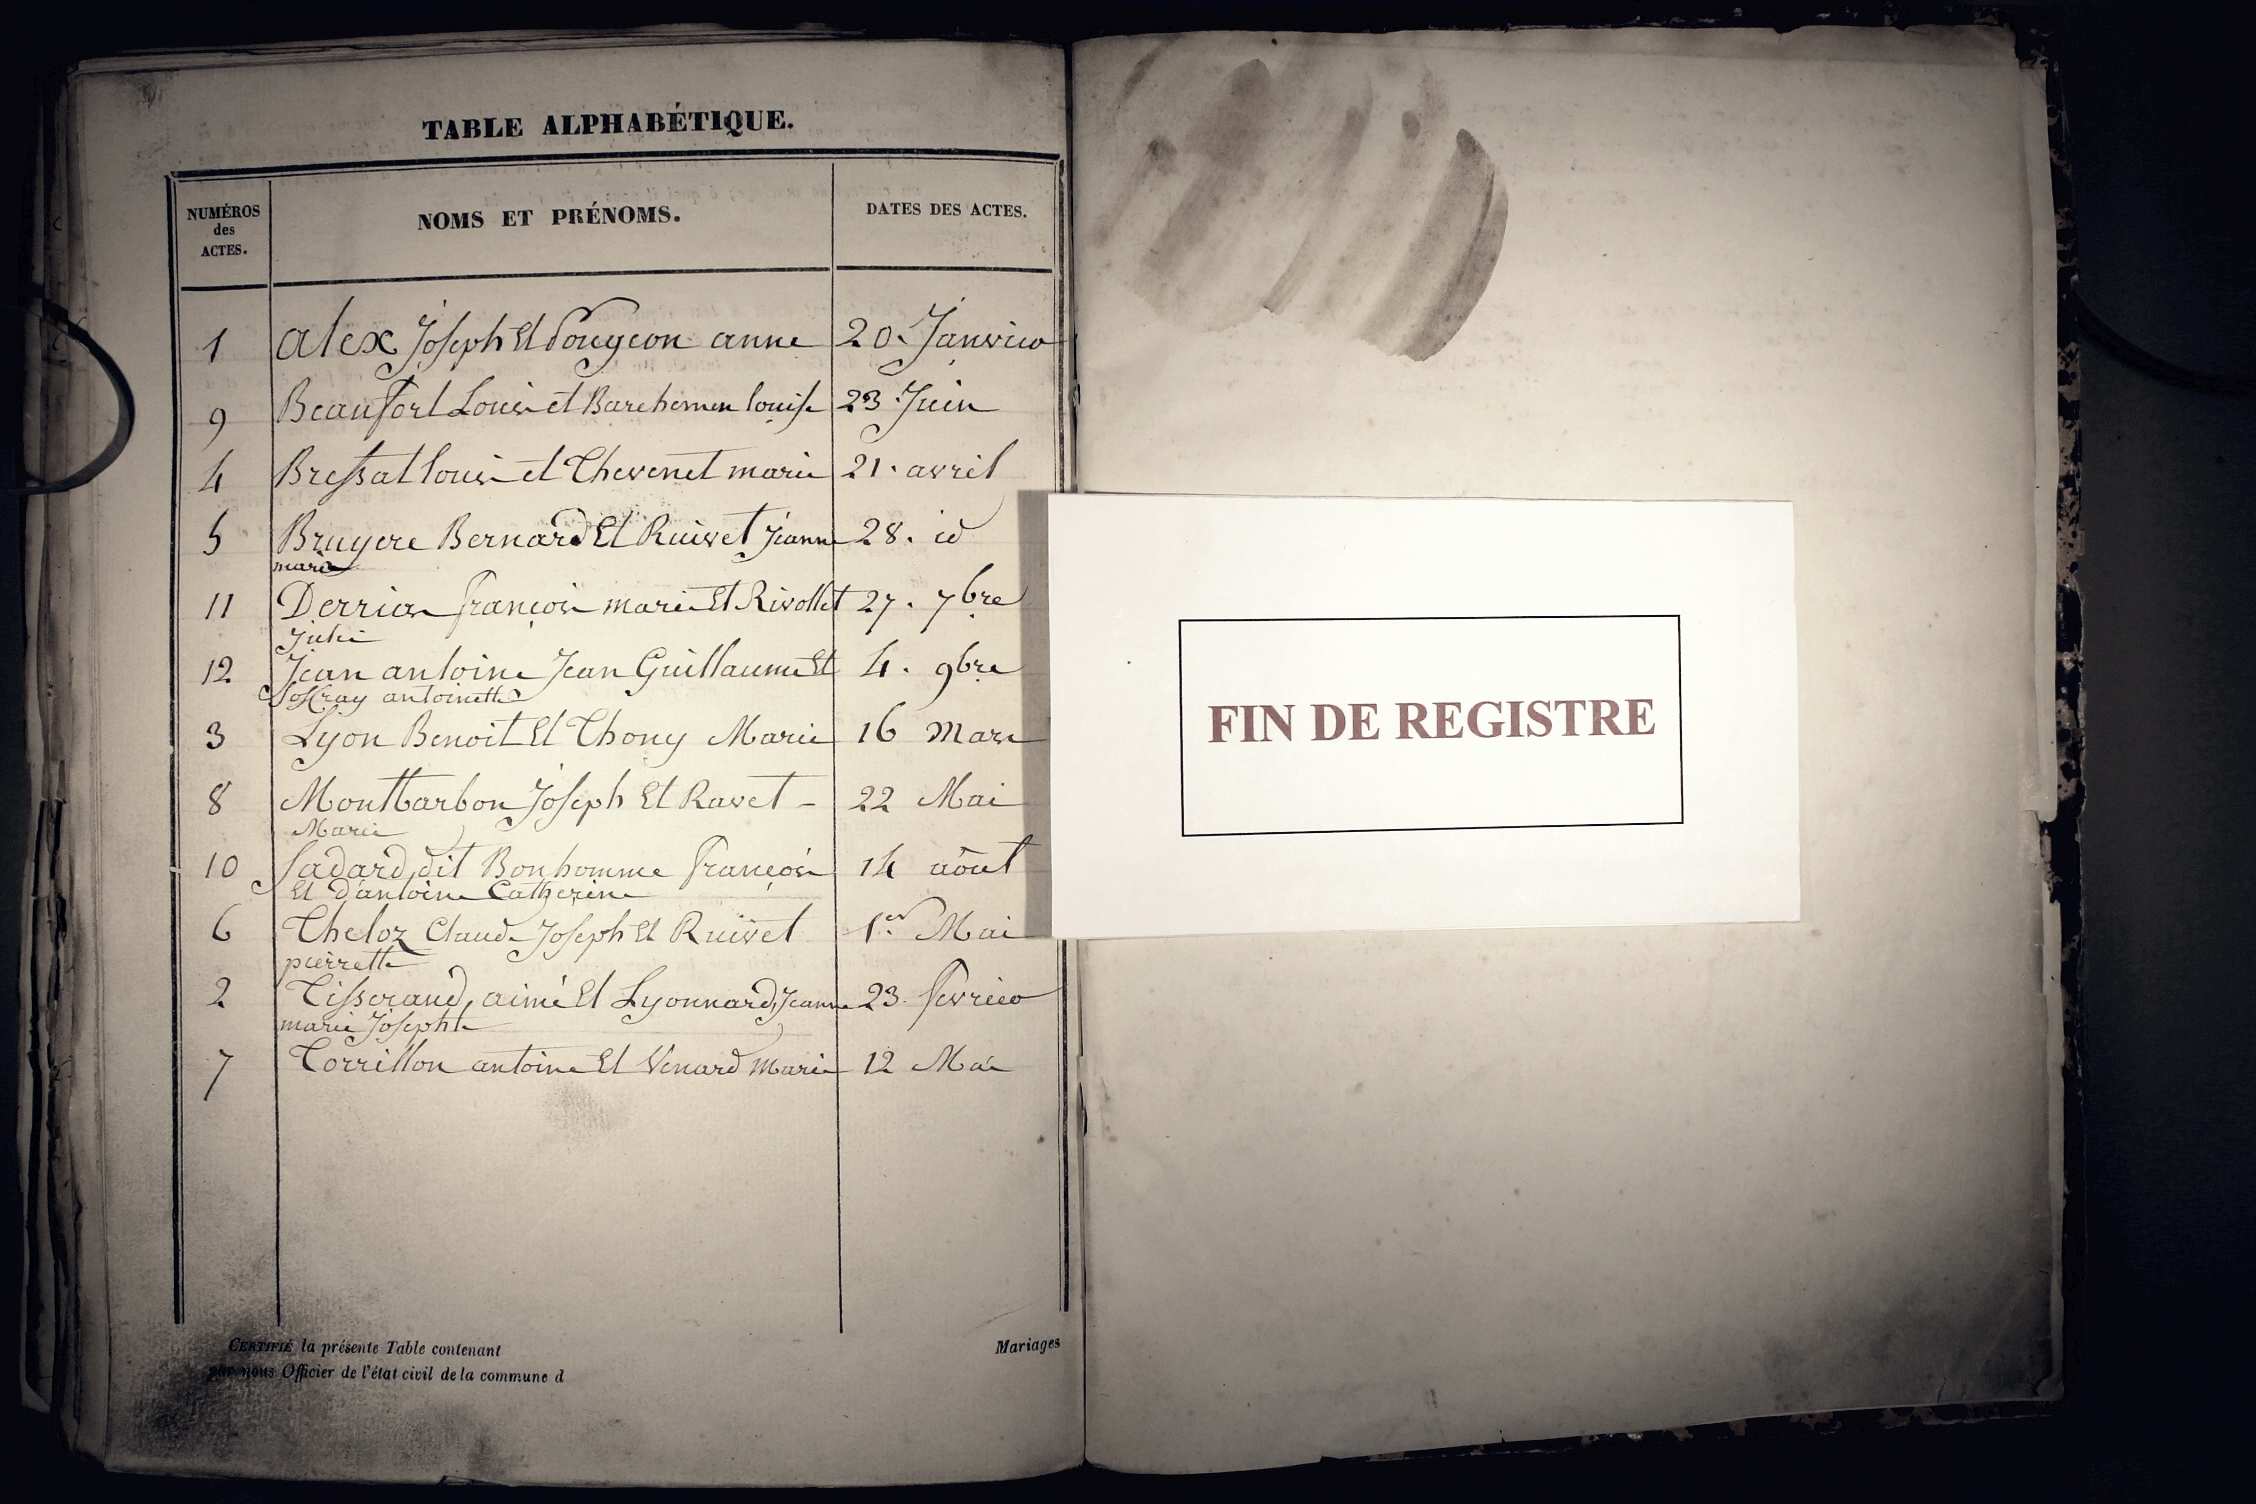 TABLE ALPHABÉTIQUE.
NUMÉROS
des
ACTES.
NOMS ET PRÉNOMS.
DATES DES ACTES.
1 alex Joseph Et Pougeon anne 20. Janvier
9 Beaufort Louis et Barchemen louise 23 Juin
4 Bressat louis et Thevenet marie 21. avril
5 Bruyere Bernard Et Ruivet Jeanne 28. id
marie
11 Derrias françois marie Et Rivollet 27. 7bre
Julie
12 Jean antoine Jean Guillaume Et 4. 9bre
antoinette
3 Lyon Benoit Et Thony Marie 16 Mars
8 Montbarbon Joseph Et Ravet - 22 Mai
Marie
10 Sadard dit Bonhomme françois 14 août
Et Dantoine Catherine
6 Theloz Claude Joseph Et Ruivet 1er Mai
pierrette
2 Tisserand aimé Et Lyonnard Jeanne 23. fevrier
marie Josephte
7 Torrillon antoine Et Venard Marie 12 Mai
CERTIFIÉ la présente Table contenant
par nous Officier de l'état civil de la commune d
Mariages
FIN DE REGISTRE